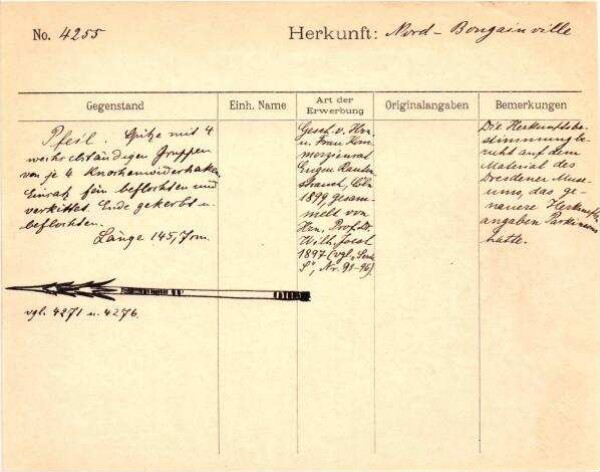 No. 4255
Herkunft: Nord-Bougainville
Gegenstand
Einh. Name
Art der
Erwerbung
Originalangaben
Bemerkungen
Pfeil. Spitze mit 4
weit abständigen Gruppen
von je 4 Knochenwiderhaken
Einsatz fein beflochten und
verkittet. Ende gekerbt u.
beflochten.
Länge 145,7 cm.
vgl. 4271 u. 4276.
Gesch. v. Hrn.
u. Frau Kom-
merzienrat
Eugen Rauten-
strauch, Cöln
1899, gesam-
melt von
Hrn. Prof. Dr.
Wilh. Joest
1897 (vgl.
S", Nr. 91-96).
Die Herkunftsbe-
stimmung be-
ruht auf dem
Material des
Dresdener Muse-
ums, das ge-
nauere Herkunfts-
angaben Parkinsons
hatte.